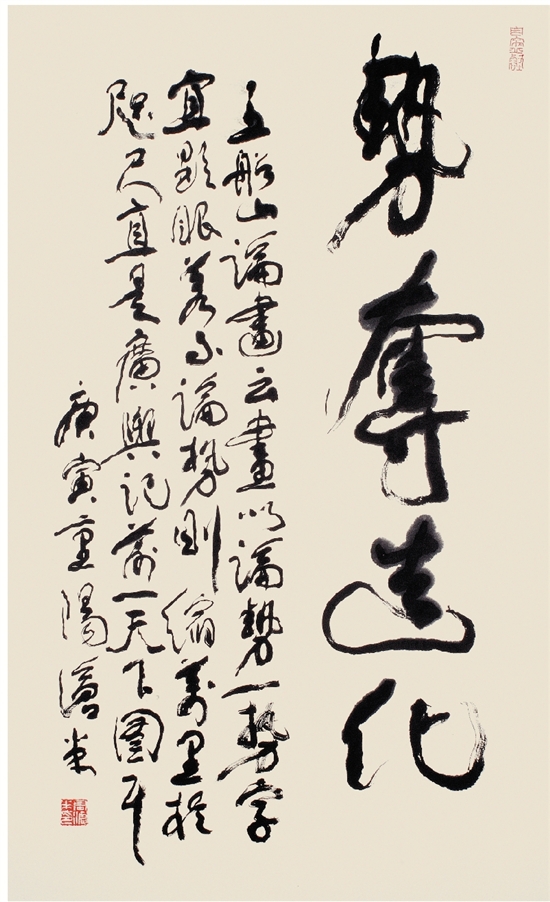 勢奪造化
王船山論畫云畫以論勢一勢字
宜顯眼若不論勢則縮萬里於
咫尺直是廣輿記前一天下圖耳
庚寅重陽滄米